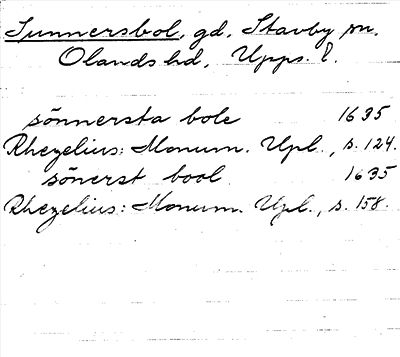 Sunnersbol, gd, Stavby sn.
Olands hd, Upps. l.
sönnersta bole 1635
Rhezelius: Monum. Upl., s. 124.
sönerst bool 1635
Rhezelius: Monum. Upl., s. 158.